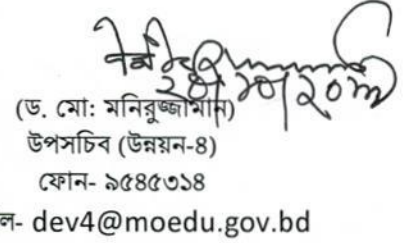 (ড. মো: মনিরুজ্জামান)
উপসচিব (উন্নয়ন-৪)
ফোন- ৯৫৪৫৩১৪
ল- dev4@moedu.gov.bd